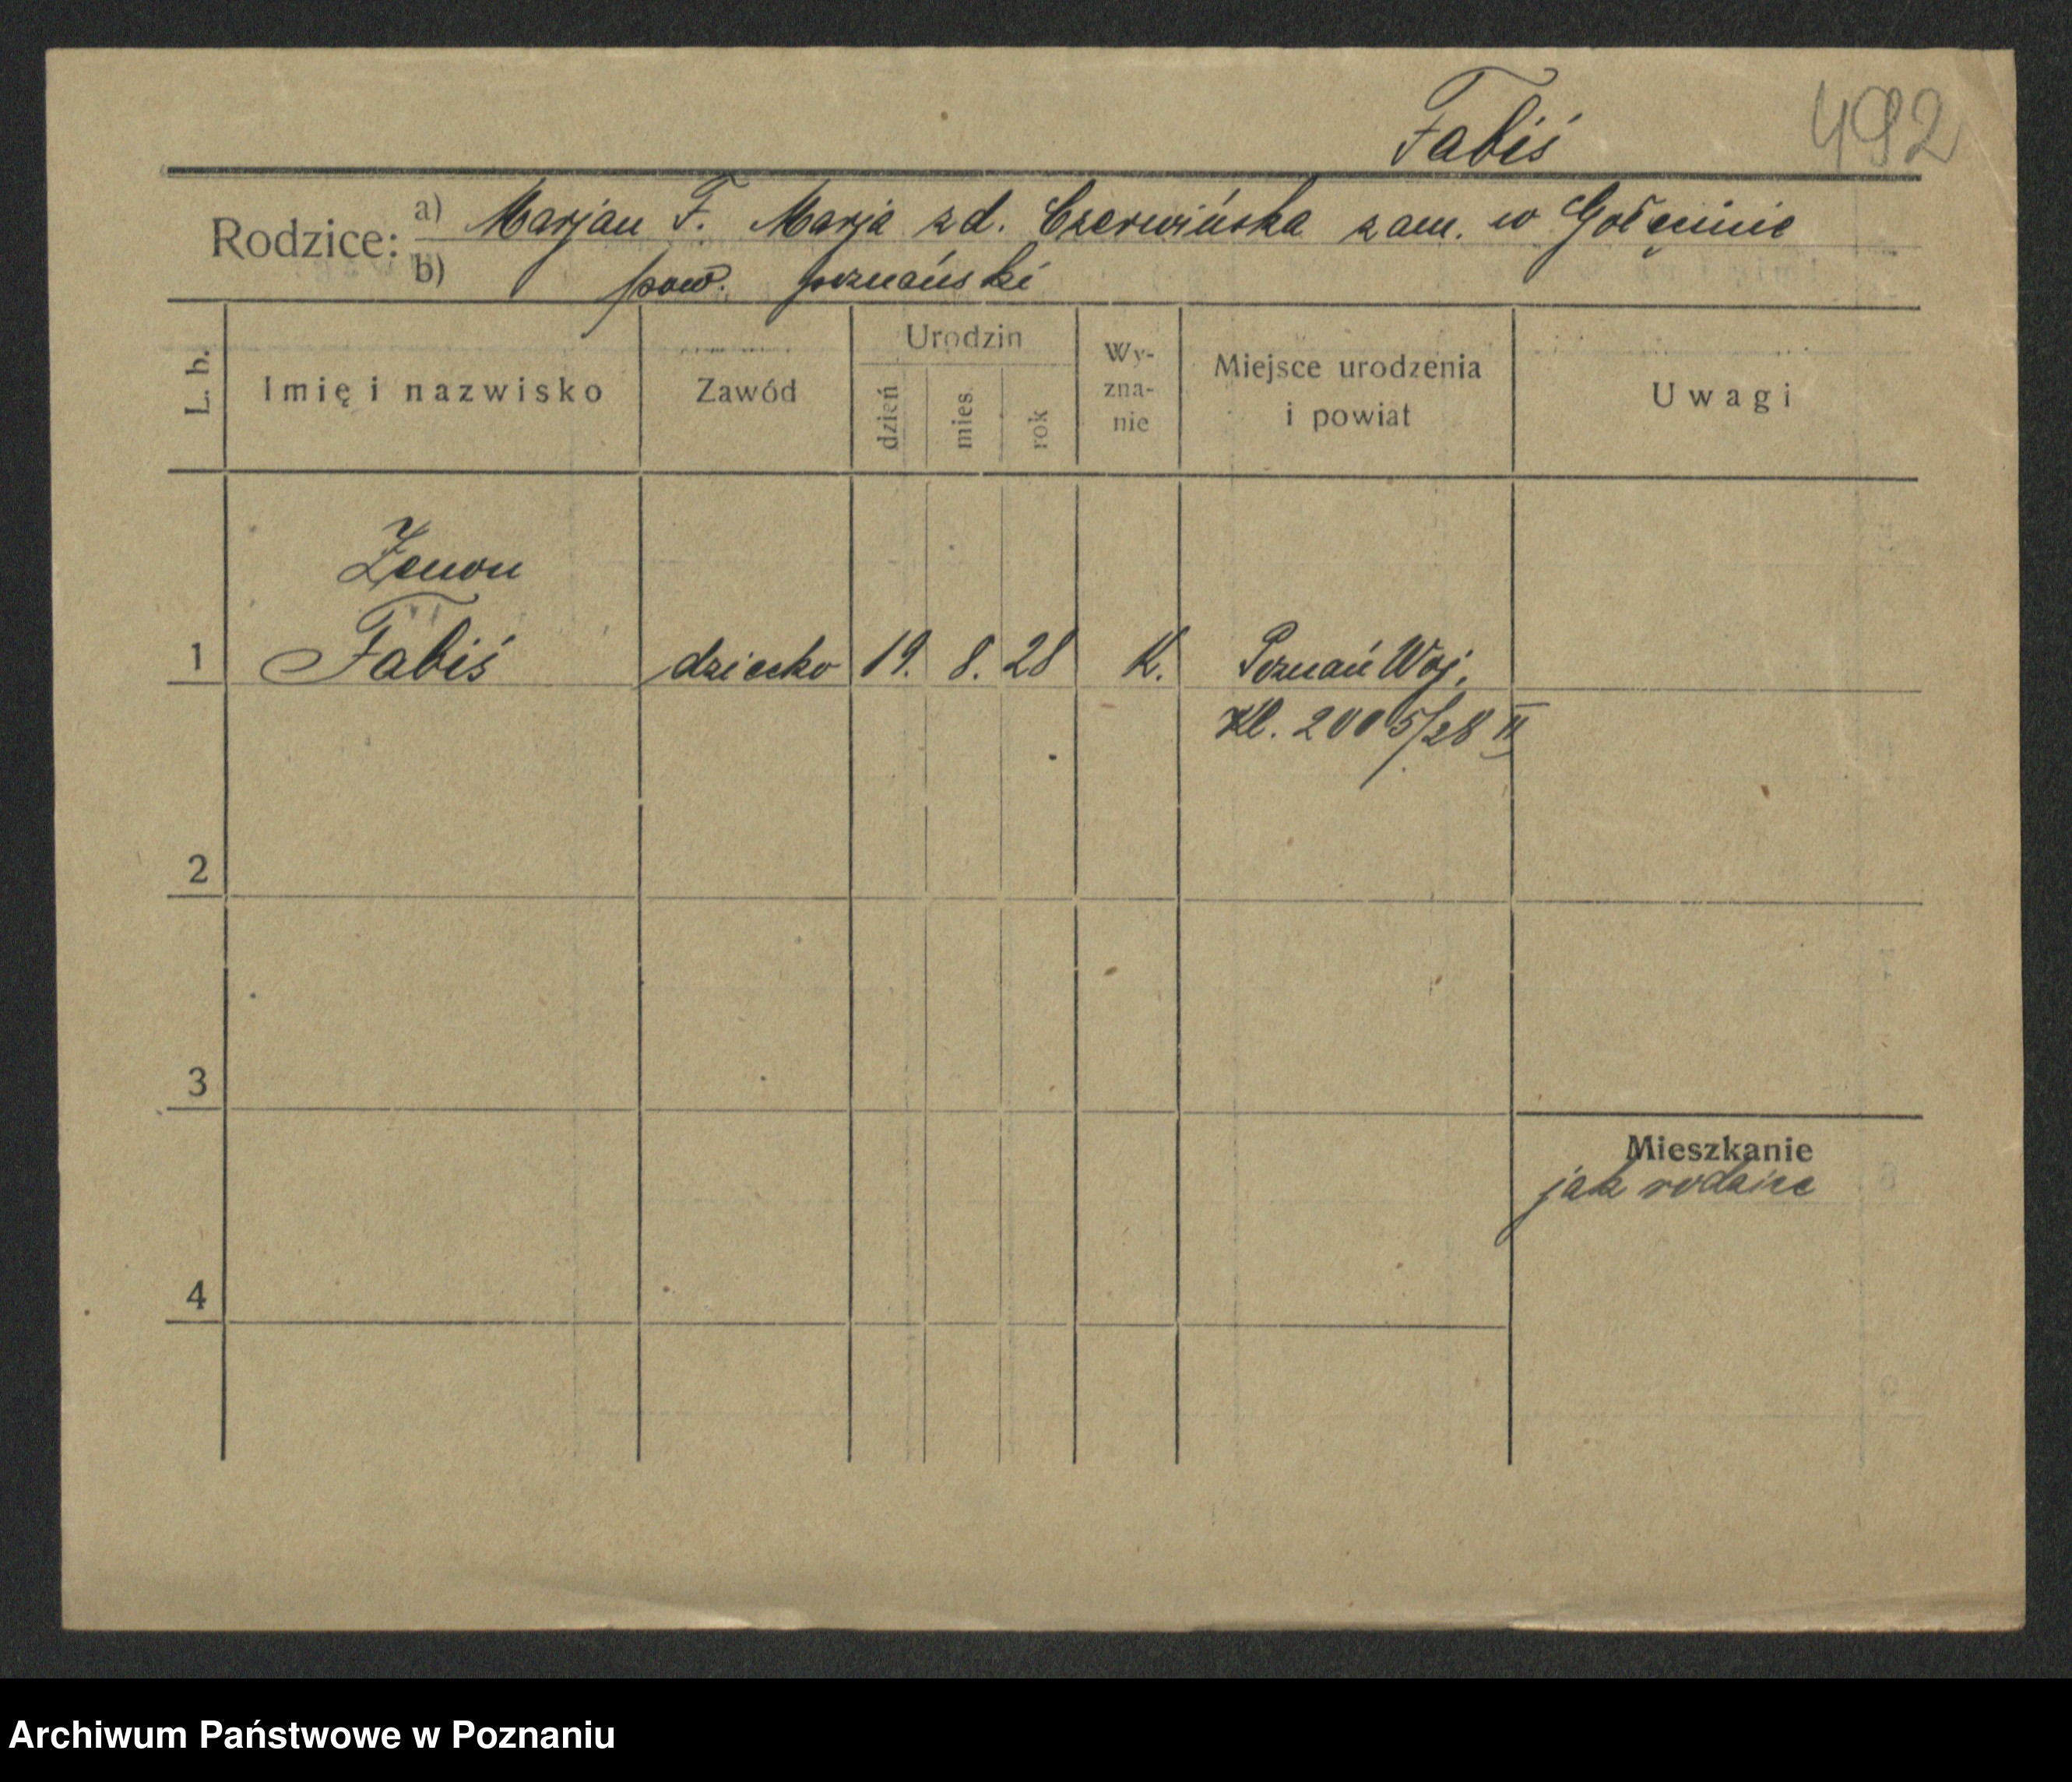 Fabiś
492
Rodzice:
a) Marjan F. Marja zd. Czerwińska zam. w Golęcinie
b) pow. poznański
L. b.
Imię i nazwisko
Zawód
Urodzin
dzień
mies.
rok
Wy-
zna-
nie
Miejsce urodzenia
i powiat
Uwagi
Zenon
1 Fabiś dziecko 19. 8. 28 K. Poznań Woj.
Kl. 2005/28 II
2
3
Mieszkanie
jak rodzice
4
Archiwum Państwowe w Poznaniu